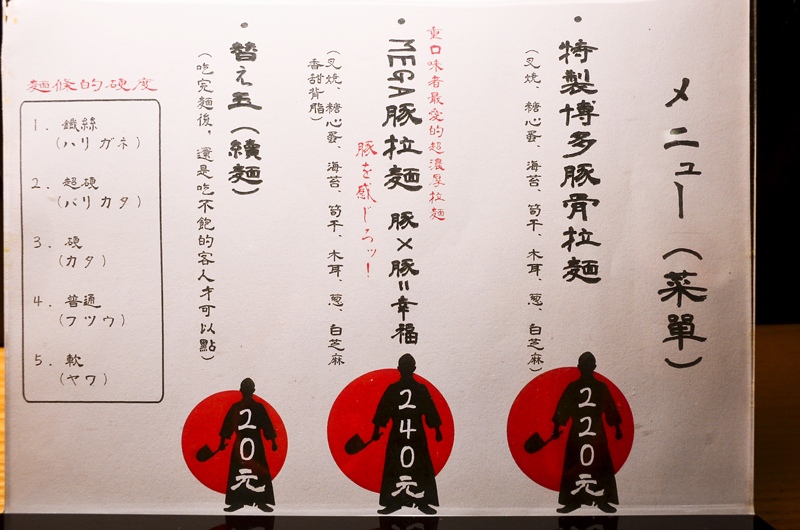 メニュー（菜單）
・特製博多豚骨拉麵
（叉燒、糖心蛋、海苔、筍干、木耳、蔥、白芝麻）
220元
重口味者最愛的超濃厚拉麵
・MEGA豚拉麵 豚×豚=幸福
豚を感じろッ！
（叉燒、糖心蛋、海苔、筍干、木耳、蔥、白芝麻
香甜背脂）
240元
・替え玉（續麵）
（吃完麵後，還是吃不飽的客人才可以點）
20元
麵條的硬度
1. 鐵絲
（ハリガネ）
2. 超硬
（バリカタ）
3. 硬
（カタ）
4. 普通
（フツウ）
5. 軟
（ヤワ）